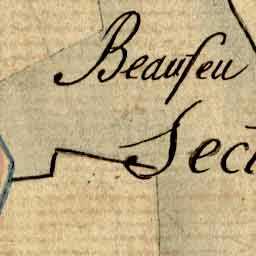 Beauſeu
Sect